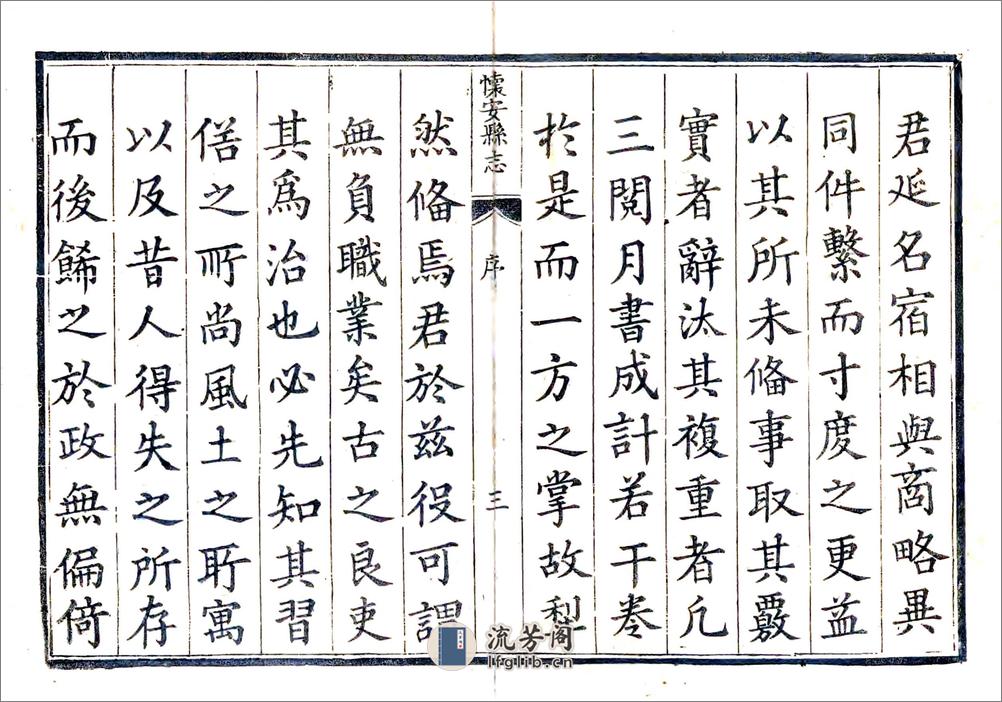 君延名宿相與商略異
同件繫而寸度之更益
以其所未俻事取其覈
實者辭汰其複重者凢
三閱月書成計若干卷
於是而一方之掌故犁
懷安縣志
序
三
然俻焉君於茲役可謂
無負職業矣古之良吏
其爲治也必先知其習
俗之所尚風土之所寓
以及昔人得失之所存
而後餙之於政無偏倚
流芳阁
lfglib.cn